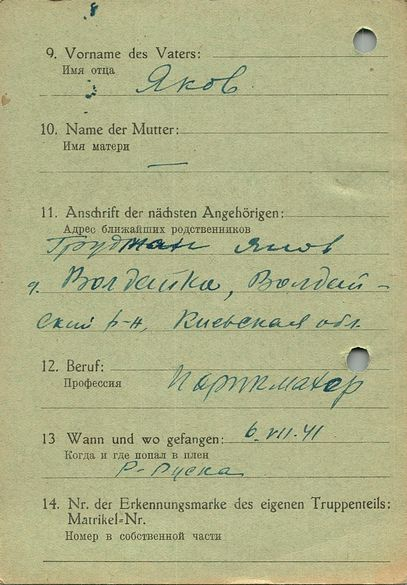 9. Vorname des Vaters:
Имя отца
Яков
10. Name der Mutter:
Имя матери
—
11. Anschrift der nächsten Angehörigen:
Адрес ближайших родственников
Грудман Яков
Волдайка, Волдай-
ский р-н, Киевская обл.
12. Beruf:
Профессия
Парикмахер
13 Wann und wo gefangen: 6. VII. 41
Когда и где попал в плен
Р-Руска
14. Nr. der Erkennungsmarke des eigenen Truppenteils:
Matrikel-Nr.
Номер в собственной части